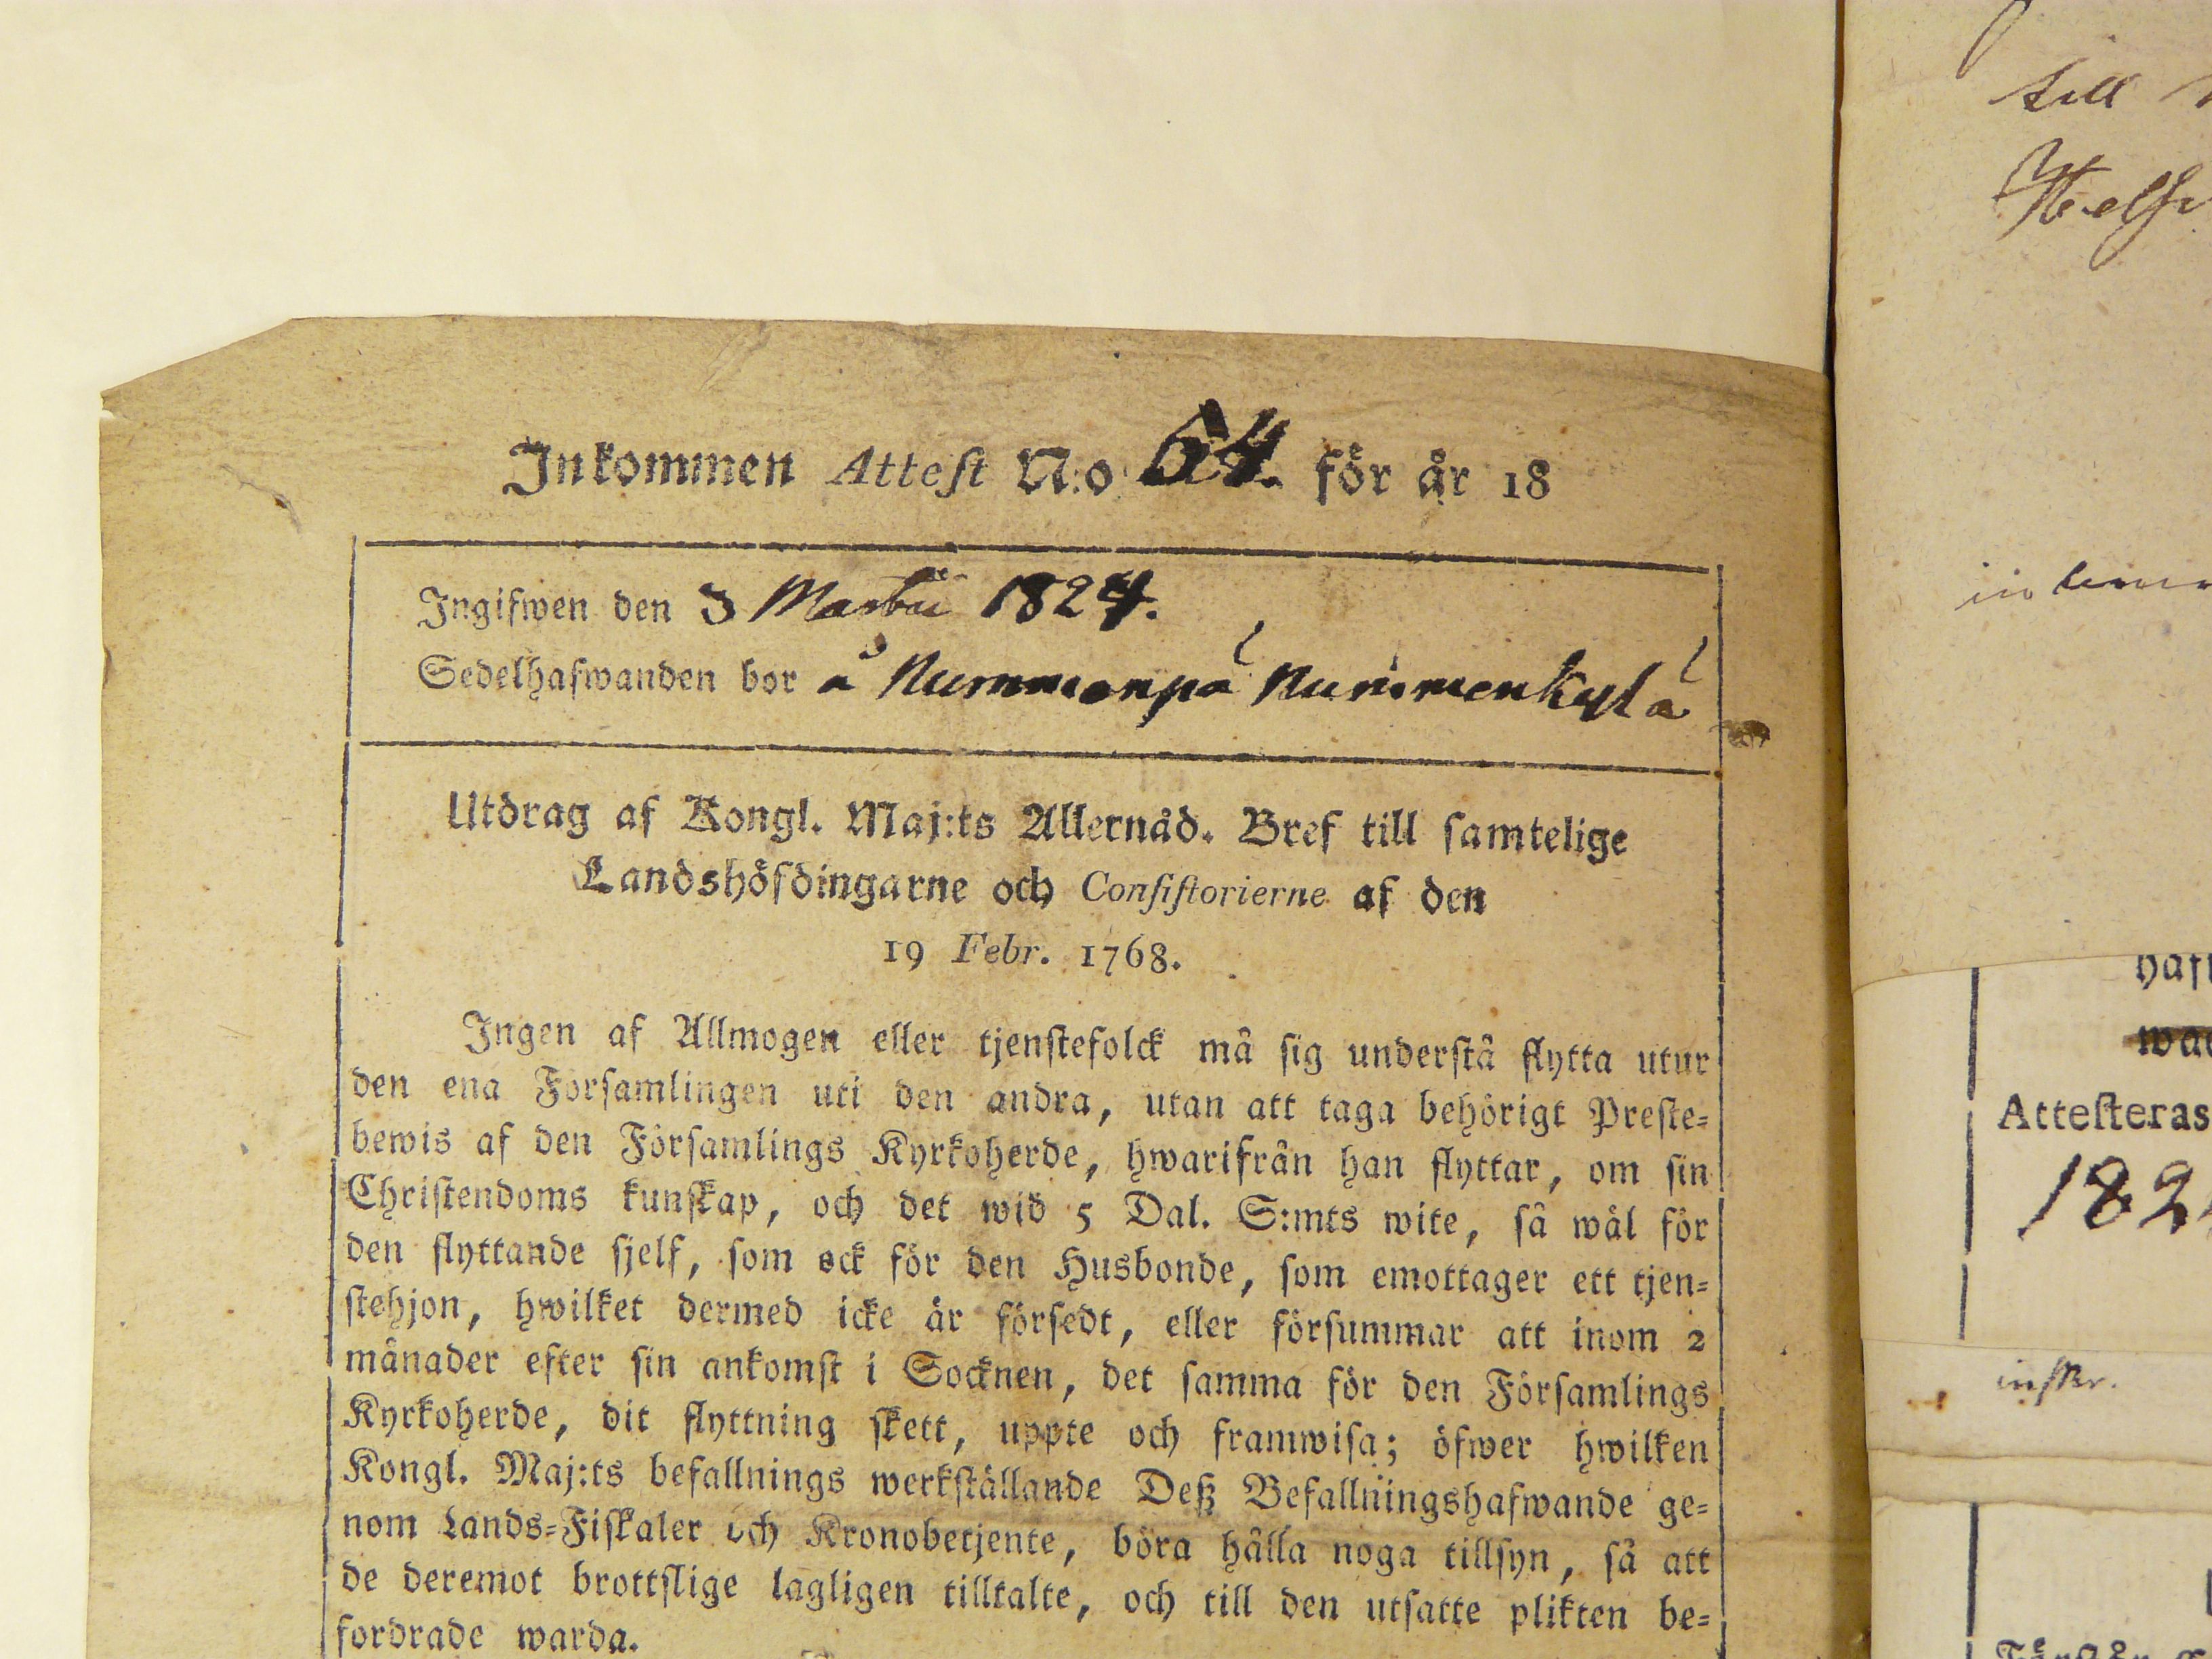 Inkommen Attest N:o 64. för år 18
Ingifwen den 3 Martii 1824.
Sedelhafwanden bor å Nummenpä Nummenkylä
Utdrag af Kongl. Maj:ts Allernåd. Bref till samtelige
Landshöfdingarne och Consistorierne af den
19 Febr. 1768.
Ingen af Allmogen eller tjenstefolck må sig understå flytta utur
den ena Församlingen uti den andra, utan att taga behörigt Preste-
bewis af den Församlings Kyrkoherde, hwarifrån han flyttar, om sin
Christendoms kunskap, och det wid 5 Dal. S:mts wite, så wäl för
den flyttande sjelf, som ock för den Husbonde, som emottager ett tjen-
stehjon, hwilket dermed icke är försedt, eller försummar att inom 2
månader efter sin ankomst i Socknen, det samma för den Församlings
Kyrkoherde, dit flyttning skett, uppte och framwisa; öfwer hwilken
Kongl. Maj:ts befallnings werkställande Deß Befallningshafwande ge-
nom Lands-Fiskaler och Kronobetjente, böra hålla noga tillsyn, så att
de deremot brottslige lagligen tilltalte, och till den utsatte plikten be-
fordrade warda.
till
Attesteras
182